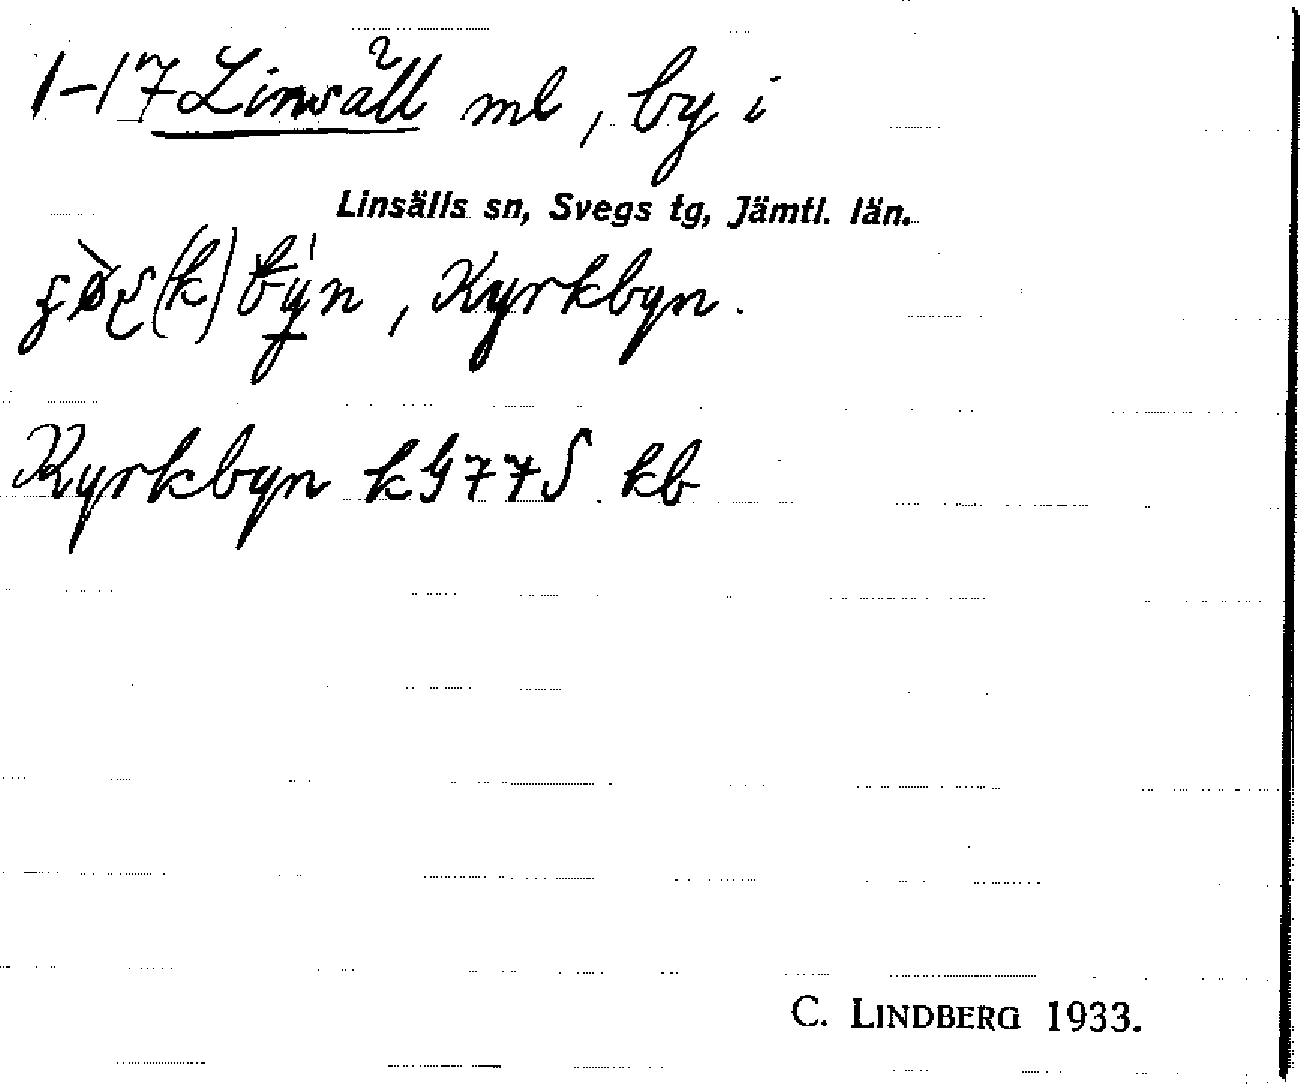 1-17 Linsäll ml, by i
Linsälls sn, Svegs tg, Jämtl. län.
(k) byn, Kyrkbyn.
Kyrkbyn k G 7 7 S kb
C. LINDBERG 1933.